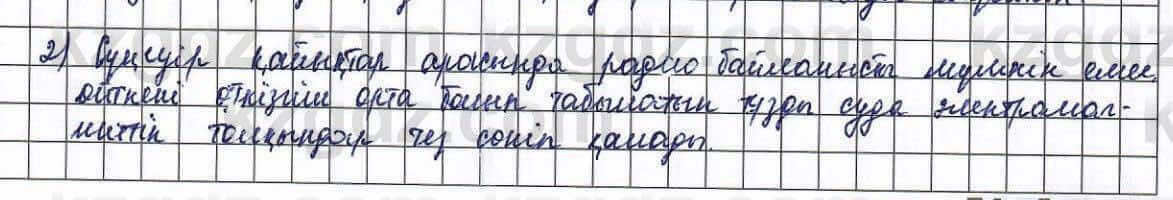 2) Сүңгуір қайықтар арасында радио байланысы мүмкін емес,
өйткені өткізгіш орта болып табылатын тұзды суда электромаг-
ниттік толқындар тез сөніп қалады.